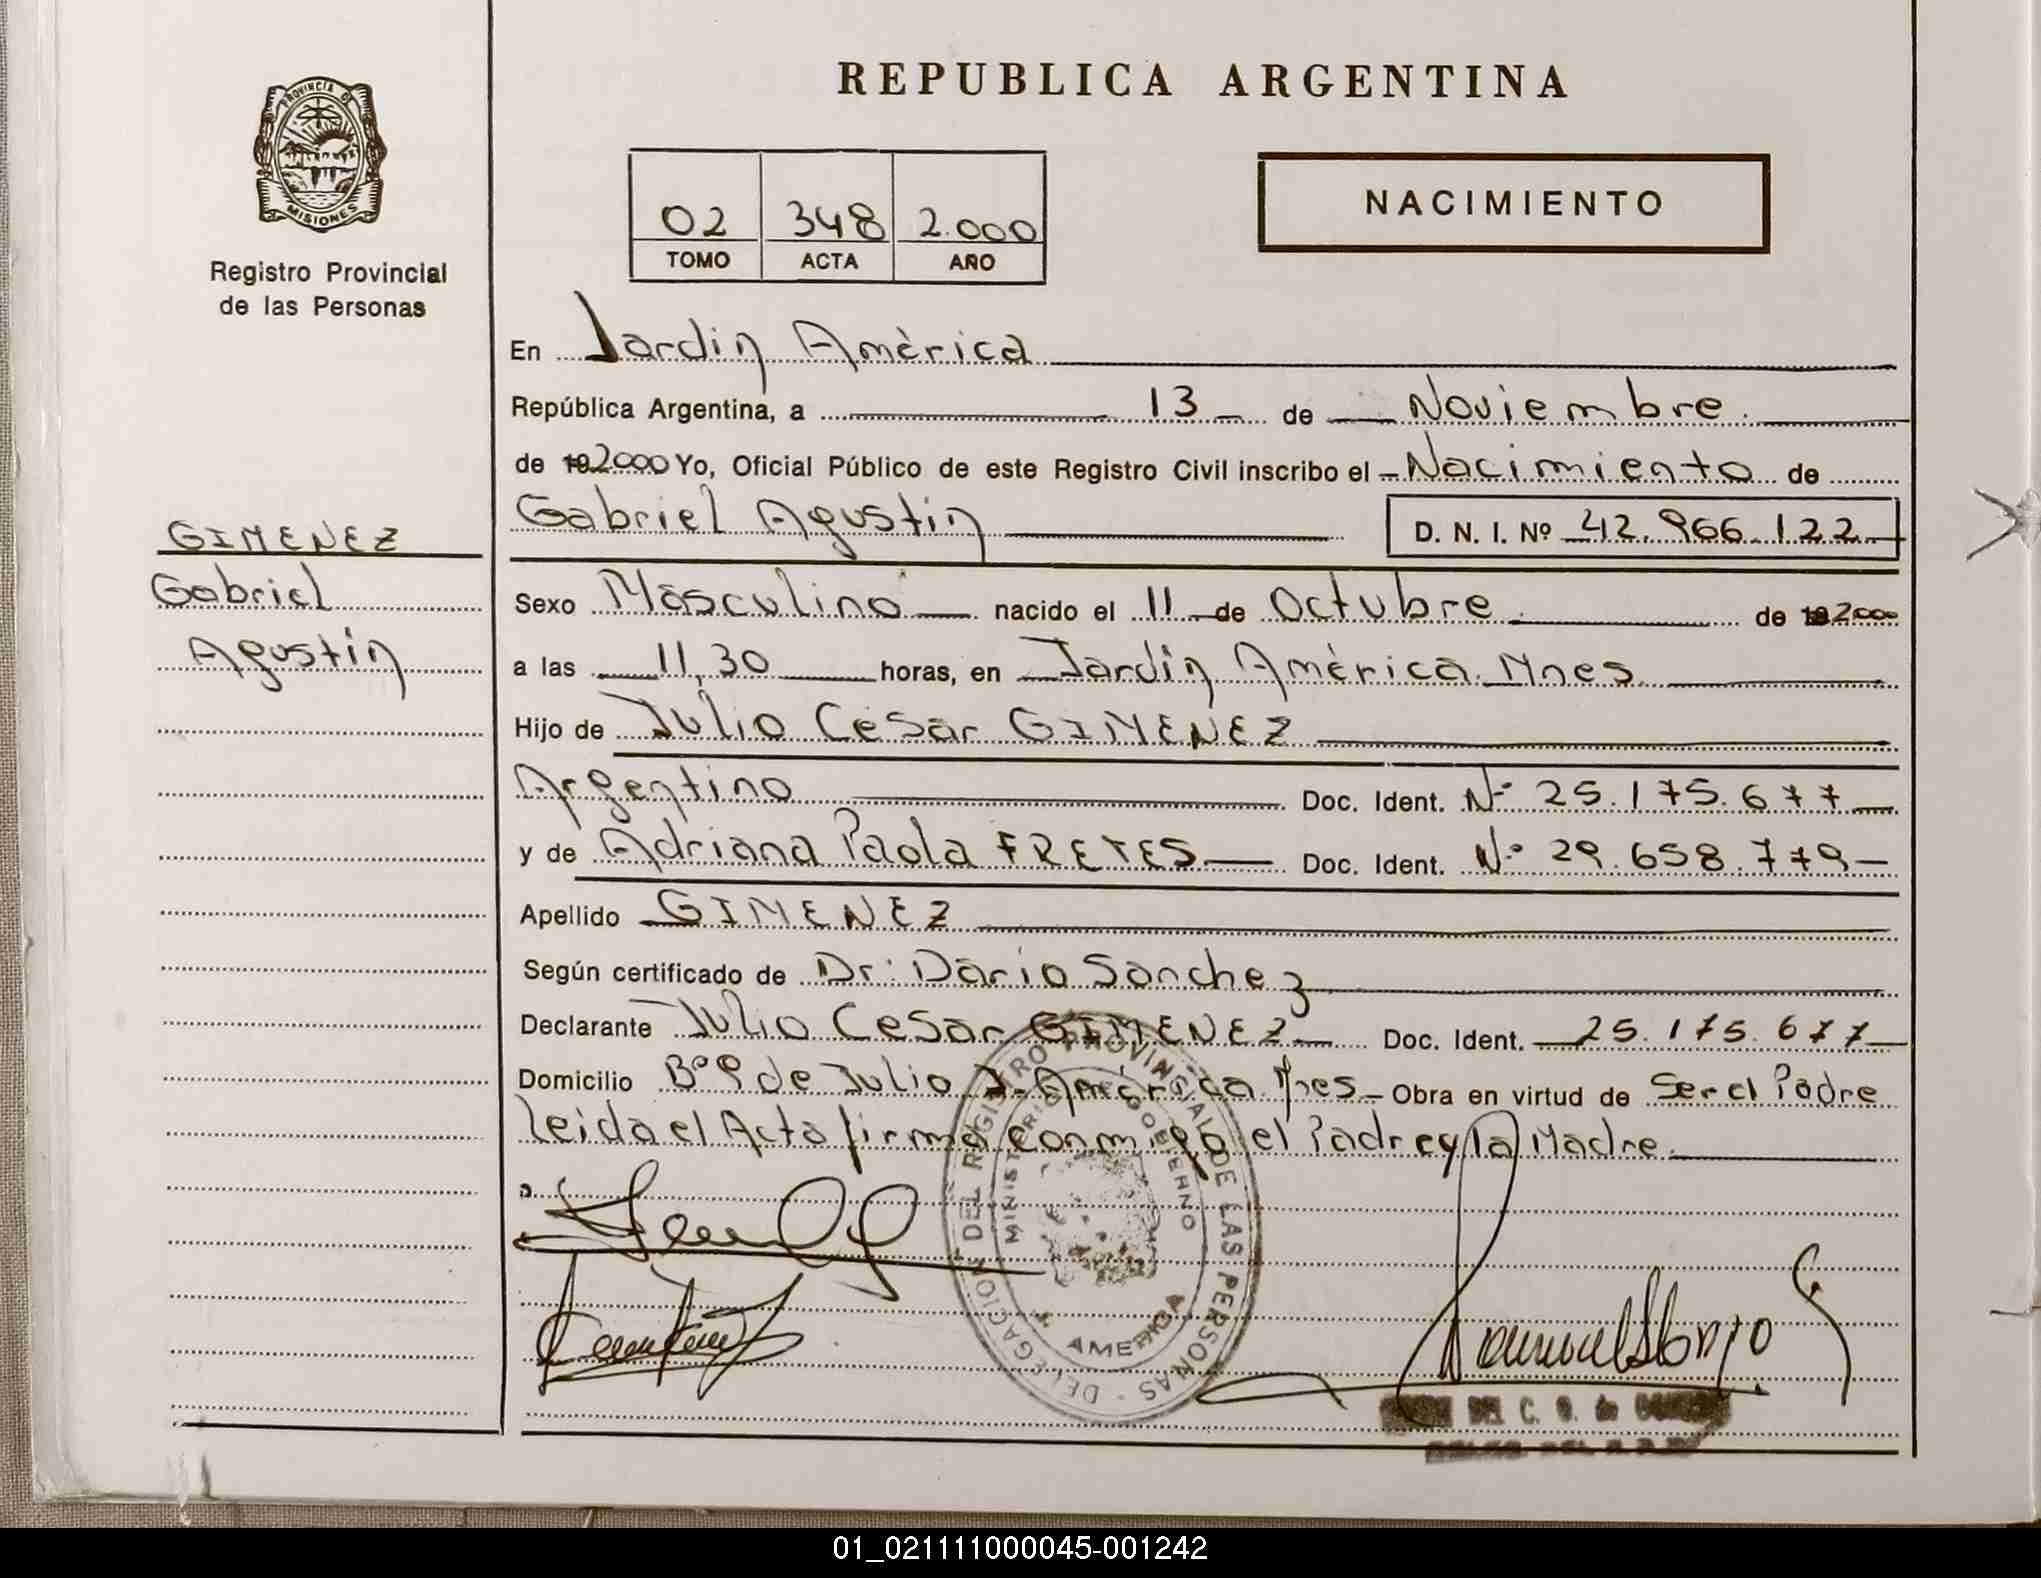 REPUBLICA ARGENTINA
PROVINCIA D
MISIONES
Registro Provincial
de las Personas
02 348 2.000
TOMO ACTA AÑO
NACIMIENTO
En Jardin América
República Argentina, a 13 de Noviembre
de 192000 Yo, Oficial Público de este Registro Civil inscribo el Nacimiento de
Gabriel Agustin D. N. I. Nº 42.966.122
GIMENEZ
Gabriel
Agustin
Sexo Masculino nacido el 11 de Octubre de 192000
a las 11,30 horas, en Jardin América. Mnes
Hijo de Julio Cesar GIMENEZ
Argentino Doc. Ident. Nº 25.175.677
y de Adriana Paola FRETES Doc. Ident. Nº 29.658.779
Apellido GIMENEZ
Según certificado de Dr: Dario Sanchez
Declarante Julio Cesar GIMENEZ Doc. Ident. 25.175.677
Domicilio Bº 9 de Julio J. América Mnes Obra en virtud de Ser el Padre
leida el Acta firma conmigo el Padre y la Madre
DELEGACION DEL REGISTRO PROVINCIAL DE LAS PERSONAS
MINISTERIO DE GOBIERNO
J. AMERICA
DEL C. G. de
01_021111000045-001242